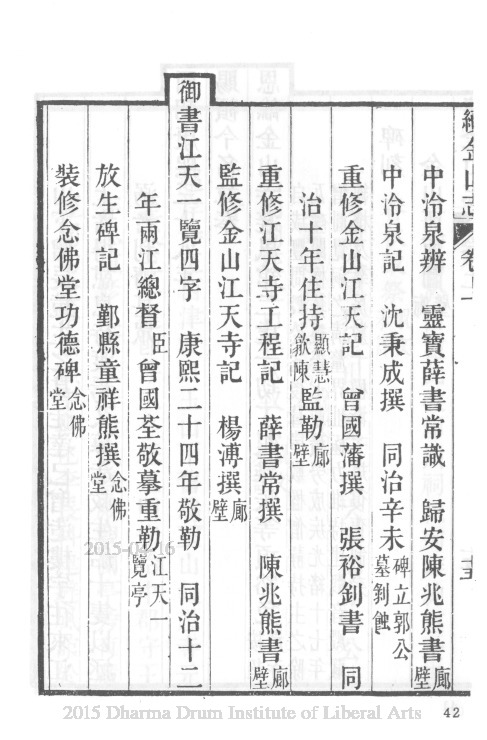 續金山志 卷上 十五
中泠泉辨 靈寶薛書常識 歸安陳兆熊書廊壁
中泠泉記 沈秉成撰 同治辛未碑立郭公墓剝蝕
重修金山江天記 曾國藩撰 張裕釗書 同
治十年住持顯慧歙陳監勒廊壁
重修江天寺工程記 薛書常撰 陳兆熊書廊壁
監修金山江天寺記 楊溥撰廊壁
御書江天一覽四字 康熙二十四年敬勒 同治十二
年兩江總督臣曾國荃敬摹重勒江天一覽亭
放生碑記 鄞縣童祥熊撰念佛堂
裝修念佛堂功德碑念佛堂
2015-04-16
42
2015 Dharma Drum Institute of Liberal Arts